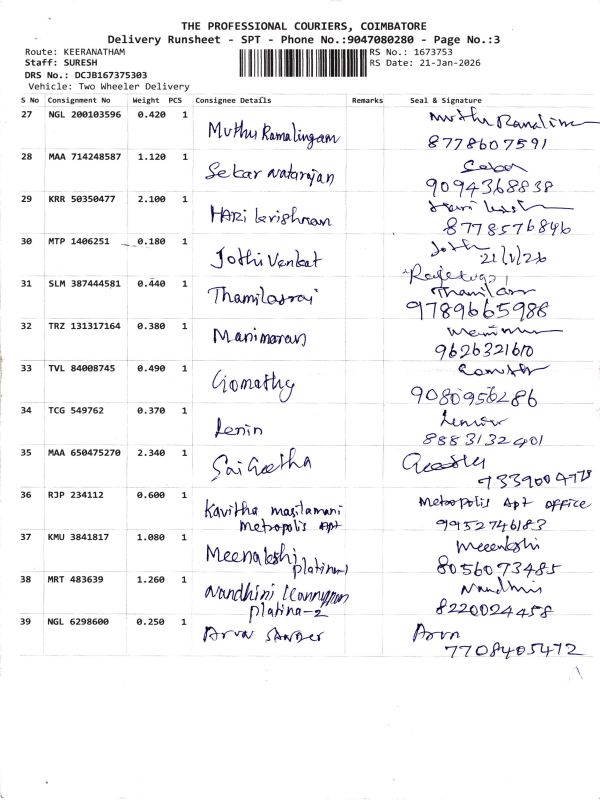 THE PROFESSIONAL COURIERS, COIMBATORE
Delivery Runsheet - SPT - Phone No.:9047080280 - Page No.:3
Route: KEERANATHAM
Staff: SURESH
DRS No.: DCJB167375303
Vehicle: Two Wheeler Delivery
RS No.: 1673753
RS Date: 21-Jan-2026
S No Consignment No Weight PCS Consignee Details Remarks Seal & Signature
27 NGL 200103596 0.420 1 Muthu Ramalingam
8778607591
28 MAA 714248587 1.120 1 Sekar Natarajan
9094368838
29 KRR 50350477 2.100 1 HARi krishnan
8778576846
30 MTP 1406251 0.180 1 Jothi Venkat
21/1/26
31 SLM 387444581 0.440 1 Thamilasrai
9789665988
32 TRZ 131317164 0.380 1 Manimaran
9626321610
33 TVL 84008745 0.490 1 Gomathy
9080956286
34 TCG 549762 0.370 1 Lenin
8883132401
35 MAA 650475270 2.340 1 Sai Geetha
36 RJP 234112 0.600 1 Kavitha masilamani Metropolis Apt office
Metropolis Apt 9952746183
37 KMU 3841817 1.080 1 Meenakshi Meenkshi
platina-1 8056073485
38 MRT 483639 1.260 1 Nandhini Nandhini
platina-2 8220024458
39 NGL 6298600 0.250 1 Arun Arun
7708405472